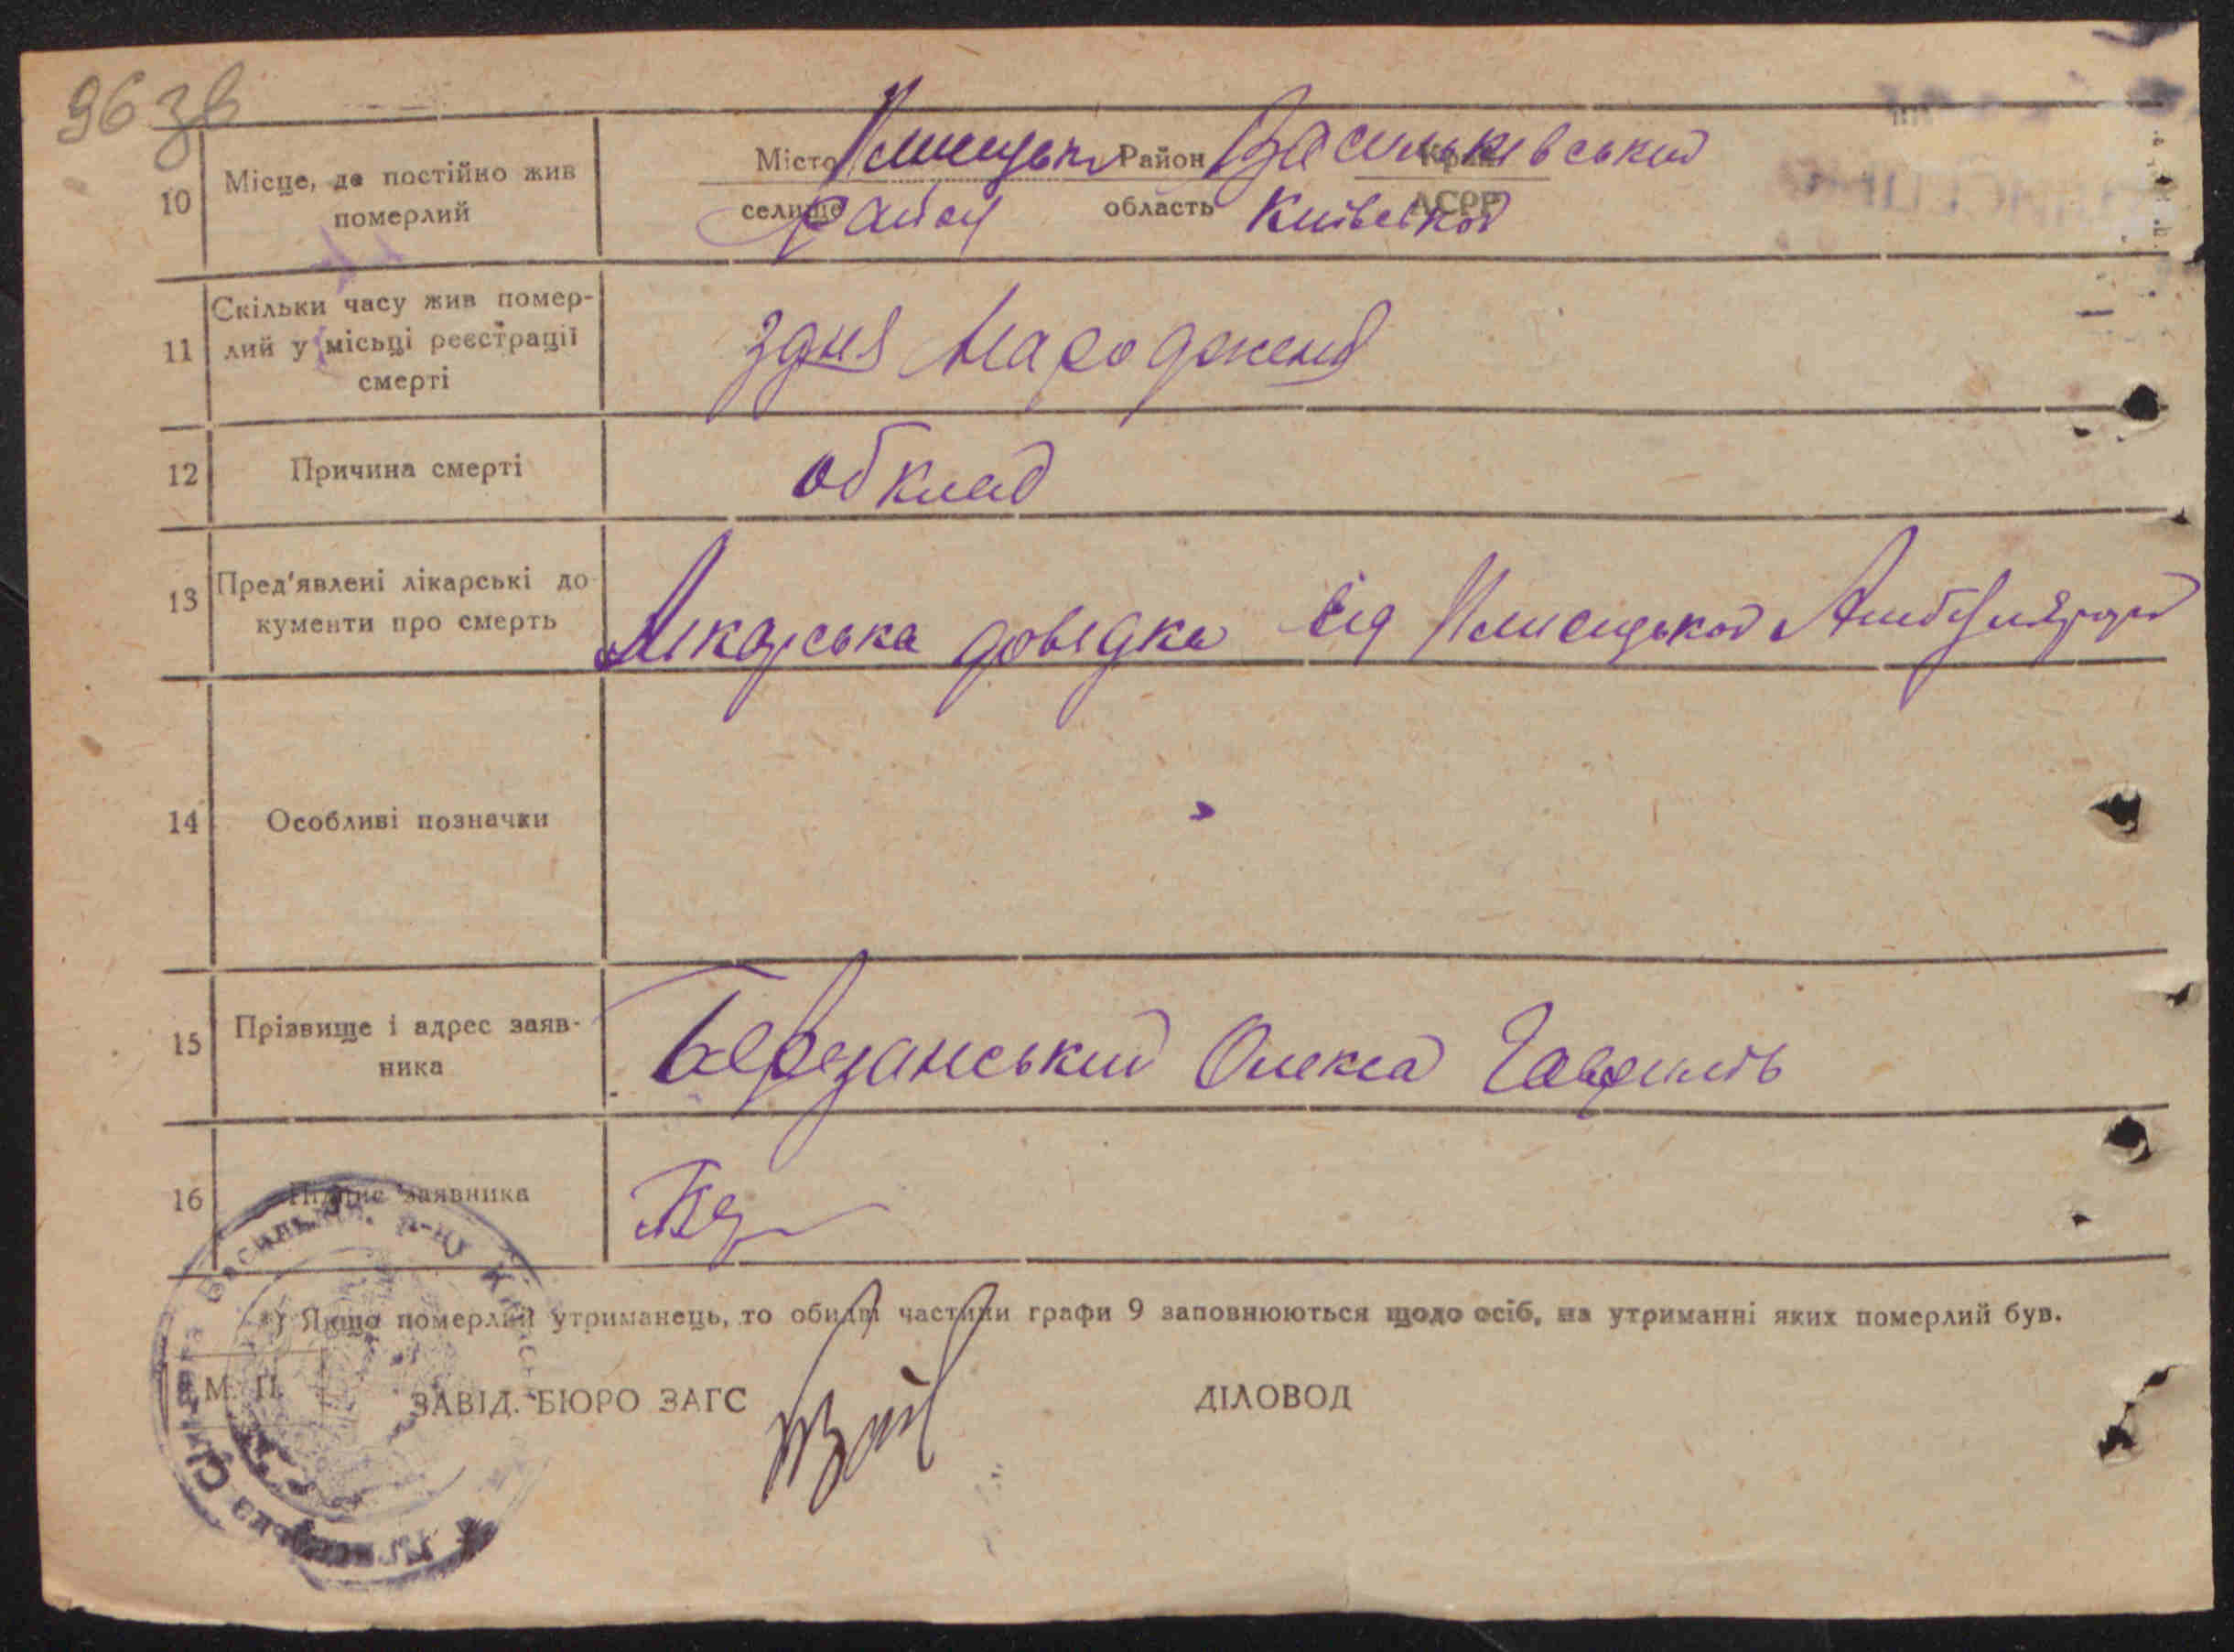 96 зв
10 Місце, де постійно жив померлий
Місто Плисецьке Район Васильківський Край
селище район область Київської АСРР
11 Скільки часу жив помер-
лий у місьці реєстрації
смерті
здня Народженя
12 Причина смерті обклад
13 Пред'явлені лікарські до
кументи про смерть
Лікарська довідка від Плисецької Амбуляторії
14 Особливі позначки
15 Прізвище і адрес заяв-
ника
Березанський Олекса Гаврилів
16 Підпис заявника
*) Якщо померлий утриманець, то обидві частини графи 9 заповнюються щодо осіб, на утриманні яких померлий був.
М. П. ЗАВІД. БЮРО ЗАГС ДІЛОВОД